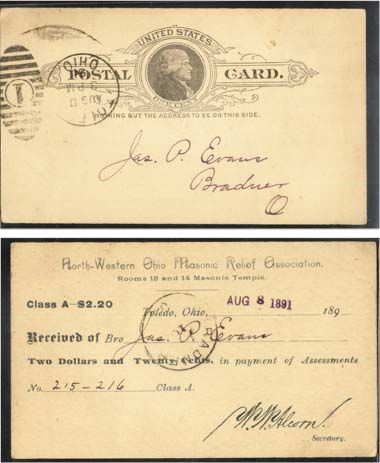 UNITED STATES
POSTAL CARD.
ONE CENT
NOTHING BUT THE ADDRESS TO BE ON THIS SIDE.
OHIO
PM
AUG
1
Jas. P. Evans
Bradner
O
North-Western Ohio Masonic Relief Association.
Rooms 13 and 14 Masonic Temple.
Class A—$2.20
Toledo, Ohio, AUG 8 1891 189
Received of Bro Jas. P. Evans
Two Dollars and Twenty Cents, in payment of Assessments
No. 215-216 Class A.
BRADNER
W. W. Alcorn.
Secretary.